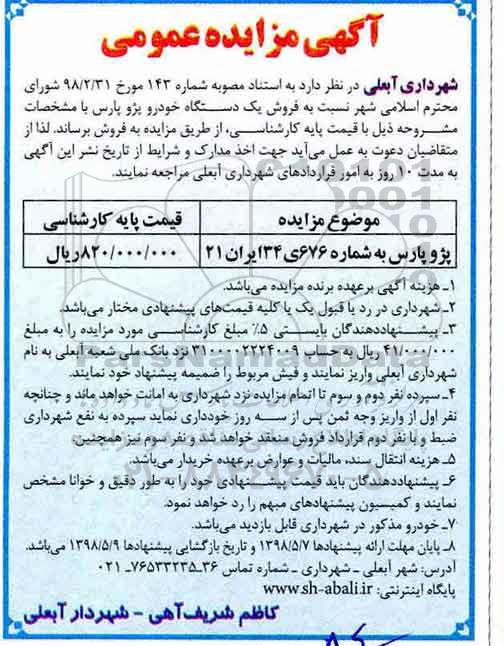 آگهی مزایده عمومی
شهرداری آبعلی در نظر دارد به استناد مصوبه شماره ۱۴۳ مورخ ۹۸/۲/۳۱ شورای
محترم اسلامی شهر نسبت به فروش یک دستگاه خودرو پژو پارس با مشخصات
مشروحه ذیل با قیمت پایه کارشناسی، از طریق مزایده به فروش برساند. لذا از
متقاضیان دعوت به عمل می‌آید جهت اخذ مدارک و شرایط از تاریخ نشر این آگهی
به مدت ۱۰ روز به امور قراردادهای شهرداری آبعلی مراجعه نمایند.
موضوع مزایده قیمت پایه کارشناسی
پژو پارس به شماره ۶۷۶ی۳۴ایران ۲۱ ۸۲۰/۰۰۰/۰۰۰ریال
۱ـ هزینه آگهی برعهده برنده مزایده می‌باشد.
۲ـ شهرداری در رد یا قبول یک یا کلیه قیمت‌های پیشنهادی مختار می‌باشد.
۳ـ پیشنهاددهندگان بایستی ۵٪ مبلغ کارشناسی مورد مزایده را به مبلغ
۴۱/۰۰۰/۰۰۰ ریال به حساب ۳۱۰۰۰۰۲۲۲۴۰۰۹ نزد بانک ملی شعبه آبعلی به نام
شهرداری آبعلی واریز نمایند و فیش مربوط را ضمیمه پیشنهاد خود نمایند.
۴ـ سپرده نفر دوم و سوم تا اتمام مزایده نزد شهرداری به امانت خواهد ماند و چنانچه
نفر اول از واریز وجه ثمن پس از سه روز خودداری نماید سپرده به نفع شهرداری
ضبط و با نفر دوم قرارداد فروش منعقد خواهد شد و نفر سوم نیز همچنین.
۵ـ هزینه انتقال سند، مالیات و عوارض برعهده خریدار می‌باشد.
۶ـ پیشنهاددهندگان باید قیمت پیشنهادی خود را به طور دقیق و خوانا مشخص
نمایند و کمیسیون پیشنهادهای مبهم را رد خواهد نمود.
۷ـ خودرو مذکور در شهرداری قابل بازدید می‌باشد.
۸ـ پایان مهلت ارائه پیشنهادها ۱۳۹۸/۵/۷ و تاریخ بازگشایی پیشنهادها ۱۳۹۸/۵/۹ می‌باشد.
آدرس: شهر آبعلی ـ شهرداری ـ شماره تماس ۳۶ـ۷۶۵۳۳۲۳۵ـ ۰۲۱
پایگاه اینترنتی: www.sh-abali.ir
کاظم شریف‌آهی - شهردار آبعلی